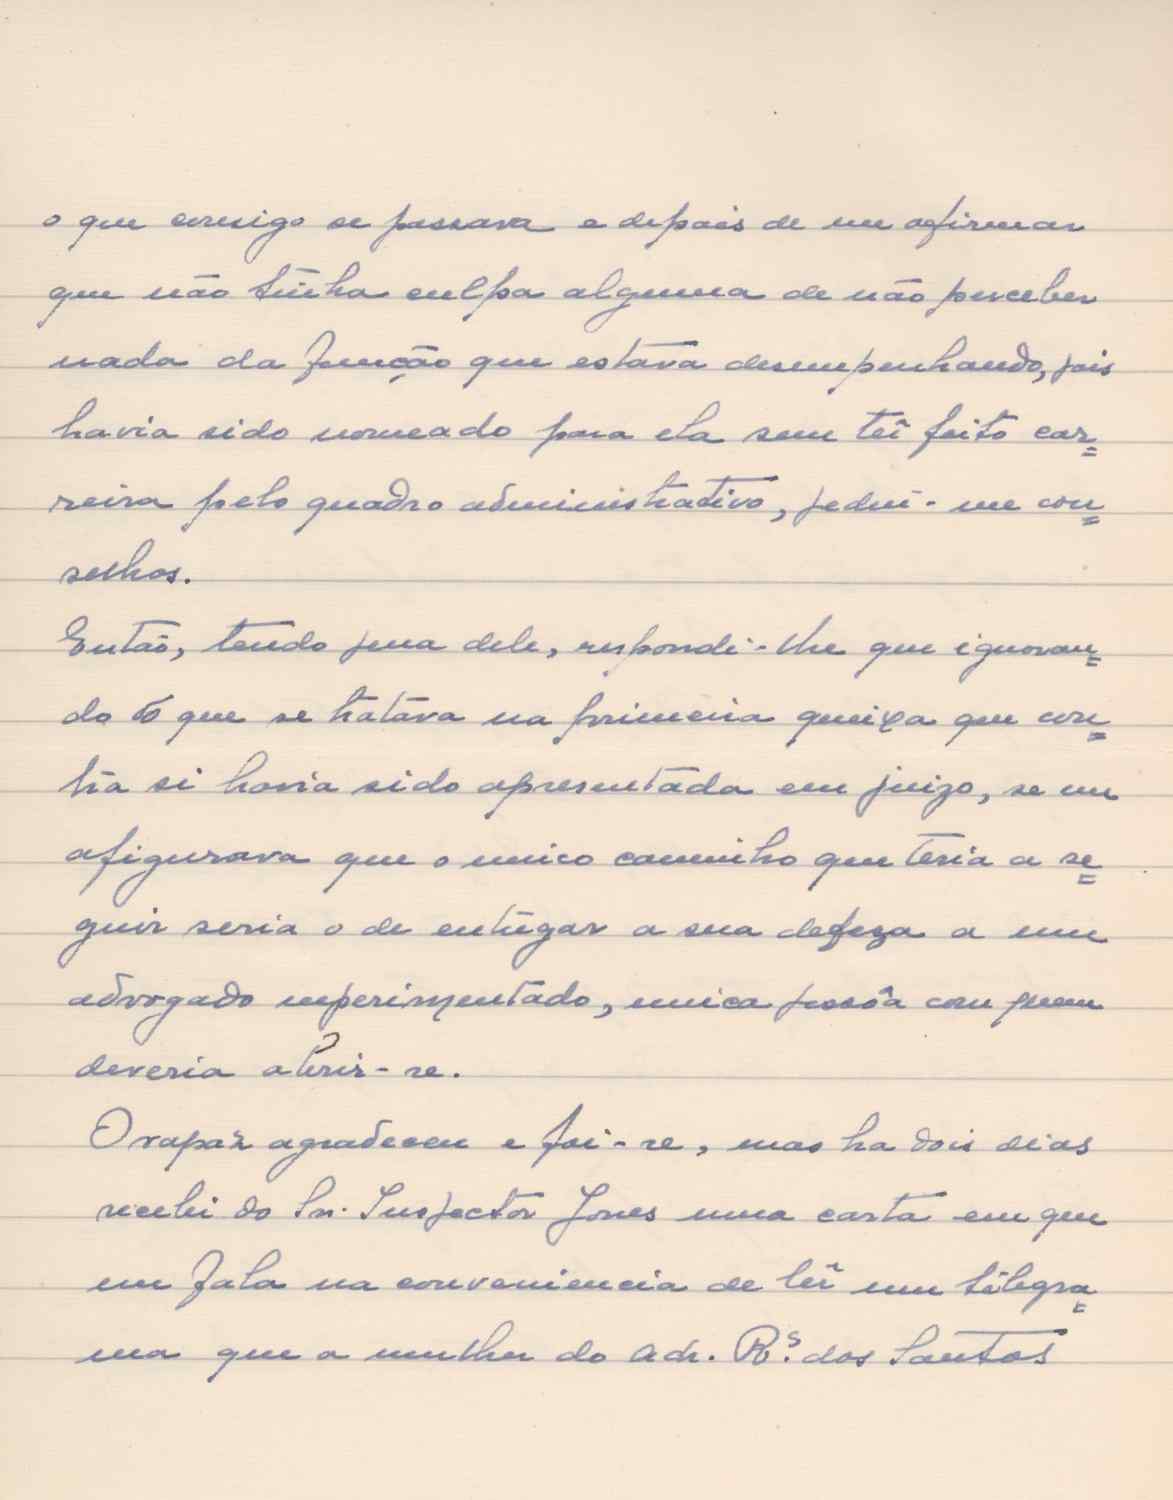 o que comsigo se passava e depois de me afirmar
que não tinha culpa alguma de não perceber
nada da função que estava desempenhando, pois
havia sido nomeado para ela sem ter feito car=
reira pelo quadro administrativo, pediu-me con=
selhos.
Então, tendo pena dele, respondi-lhe que ignoran=
do o que se tratava na primeira queixa que con=
tra si havia sido apresentada em juizo, se me
afigurava que o unico caminho que teria a se=
guir seria o de entregar a sua defeza a um
advogado experimentado, unica pessôa com quem
deveria abrir-se.
O rapaz agradeceu e foi-se, mas ha dois dias
recebi do Sr. Inspector Jones uma carta em que
me fala na conveniencia de ler um telegra=
ma que a mulher do adr. Rs. dos Santos